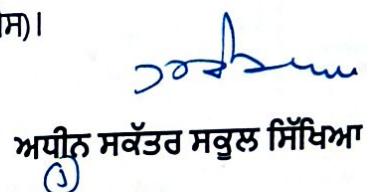 ਸ)।
ਅਧੀਨ ਸਕੱਤਰ ਸਕੂਲ ਸਿੱਖਿਆ